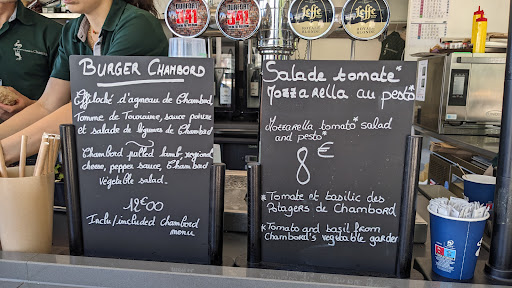 BURGER CHAMBORD
Effiloché d'agneau de Chambord
Tomme de Touraine, sauce poivre
et salade de légumes de Chambord
Chambord pulled lamb, regional
cheese, pepper sauce, Chambord
Vegetable salad.
12€00
Inclu/included Chambord
menu
Salade tomate*
Mozzarella au pesto*
Mozzarella tomato* salad
and pesto*
8€
*Tomate et basilic des
Potagers de Chambord
*Tomato and basil from
Chambord's vegetable garden
Leffe
Leffe